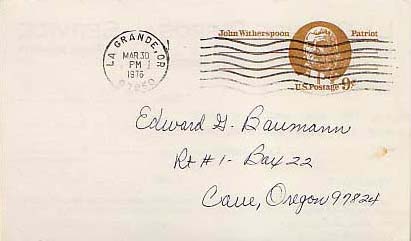 LA GRANDE, OR
MAR 30
PM
1976
97850
John Witherspoon Patriot
U.S. Postage 9¢
Edward G. Baumann
Rt #1- Box 22
Cove, Oregon 97824